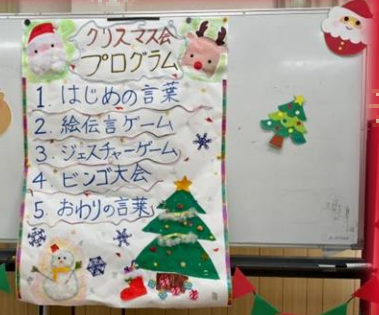 クリスマス会
プログラム
1. はじめの言葉
2. 絵伝言ゲーム
3. ジェスチャーゲーム
4. ビンゴ大会
5. おわりの言葉